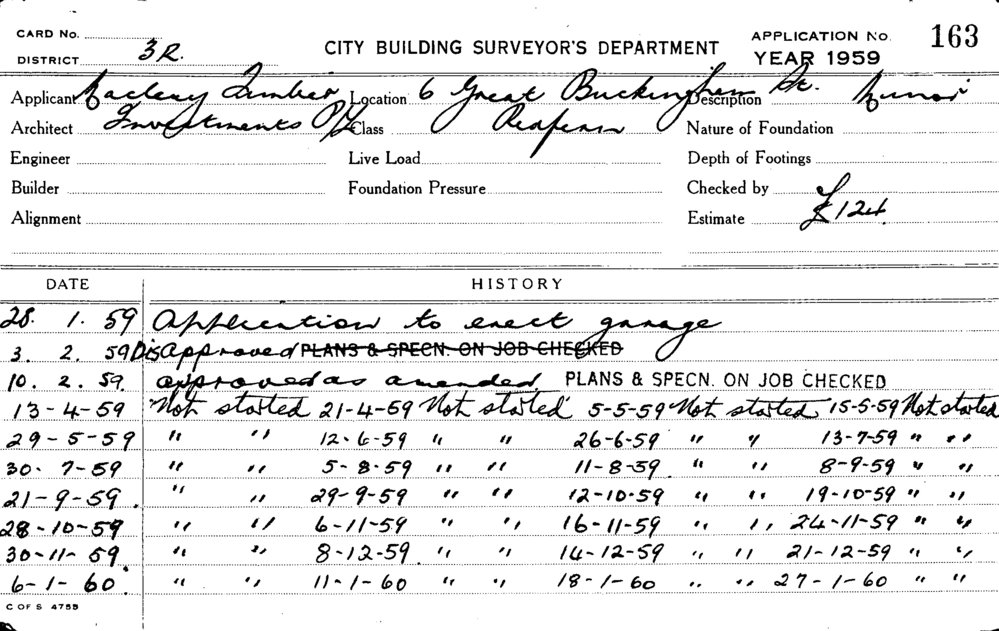 CARD No.
DISTRICT 3R.
CITY BUILDING SURVEYOR'S DEPARTMENT
APPLICATION No. 163
YEAR 1959
Applicant Macleay Timber Location 6 Great Buckingham St. Description Minor
Architect Investments P/L Class Redfern Nature of Foundation
Engineer Live Load Depth of Footings
Builder Foundation Pressure Checked by
Alignment Estimate £124.
DATE HISTORY
28. 1. 59 Application to erect garage
3. 2. 59 DisApproved PLANS & SPECN. ON JOB CHECKED
10. 2. 59. approved as amended PLANS & SPECN. ON JOB CHECKED
13-4-59 "Not started 21-4-59 "Not started" 5-5-59 "Not started 15-5-59 Not started
29-5-59 " " 12-6-59 " " 26-6-59 " " 13-7-59 " "
30-7-59 " " 5-8-59 " " 11-8-59 " " 8-9-59 " "
21-9-59. " " 29-9-59 " " 12-10-59 " " 19-10-59 " "
28-10-59 " " 6-11-59 " " 16-11-59 " " 24-11-59 " "
30-11-59. " " 8-12-59 " " 14-12-59 " " 21-12-59 " "
6-1-60. " " 11-1-60 " " 18-1-60 " " 27-1-60 " "
C OF S 4755